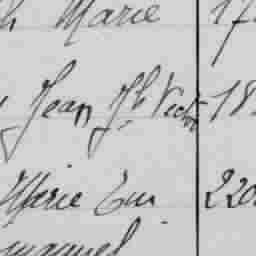 h Marie 17
Jean Jh Victor 18
Marie Em 220
manuel